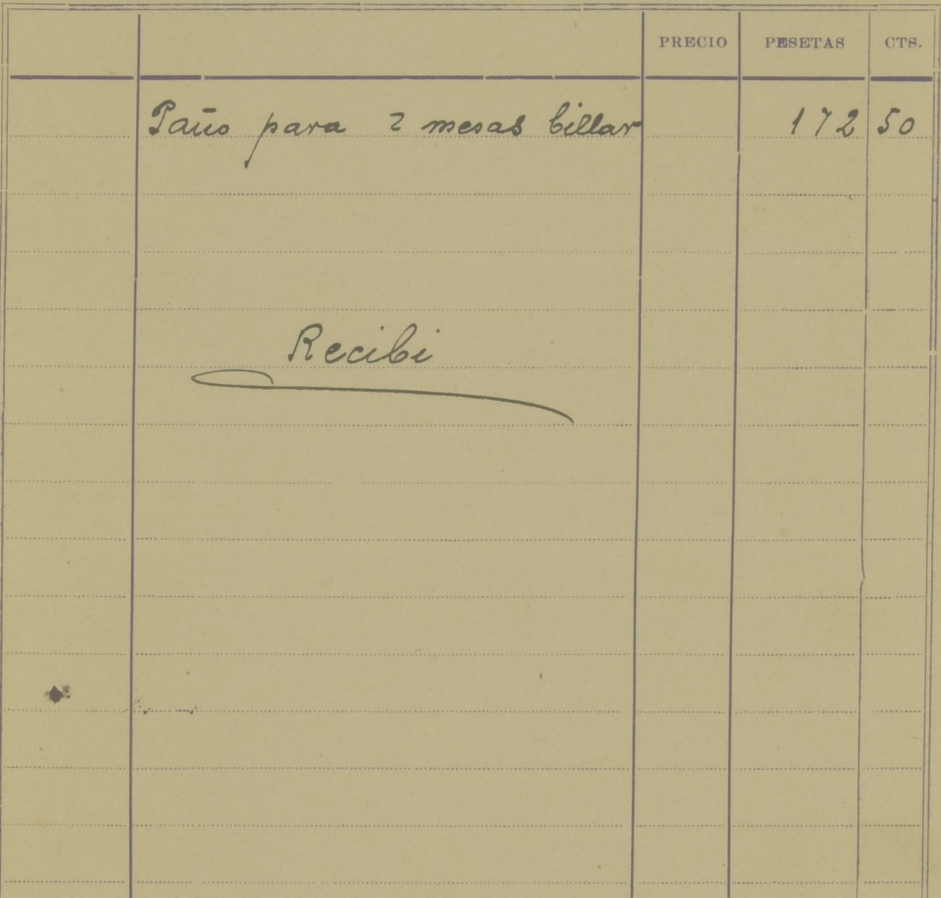 PRECIO PESETAS CTS.
Paño para 2 mesas billar 172 50
Recibi